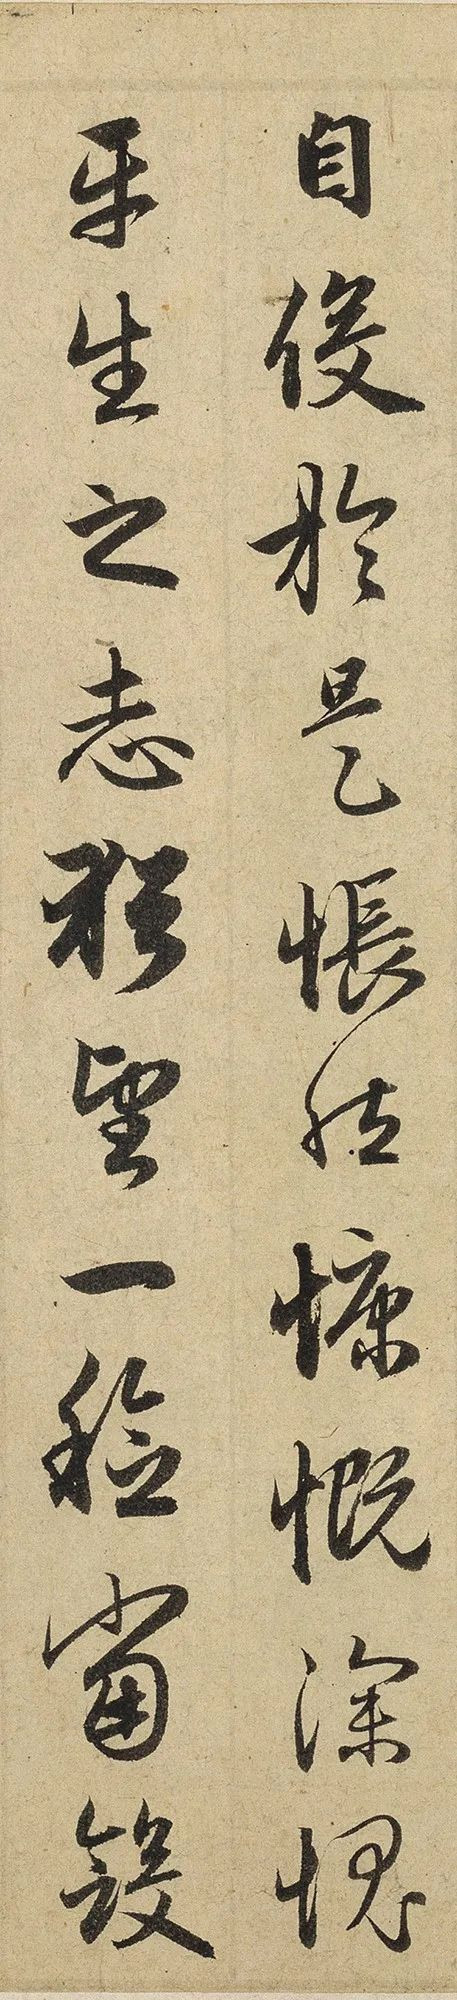 自役於是悵然慷慨深愧
平生之志猶望一稔當斂